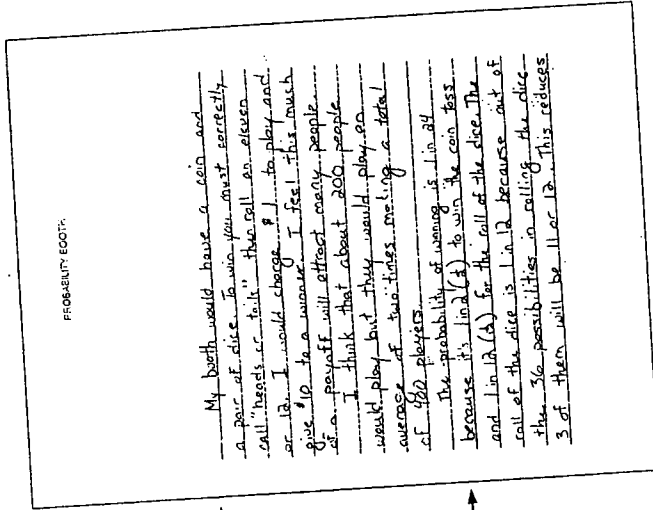 PROBABILITY BOOTH
My booth would have a coin and
a pair of dice. To win you must correctly
call "heads or tails" then roll an eleven
or 12. I would charge $1 to play and
give $10 to a winner. I feel this much
of a payoff will attract many people.
I think that about 200 people
would play but they would play an
average of two times making a total
of 400 players.
The probability of winning is 1 in 24
because it's 1 in 2 (½) to win the coin toss
and 1 in 12 (⅟12) for the roll of the dice. The
roll of the dice is 1 in 12 because out of
the 36 possibilities in rolling the dice
3 of them will be 11 or 12. This reduces